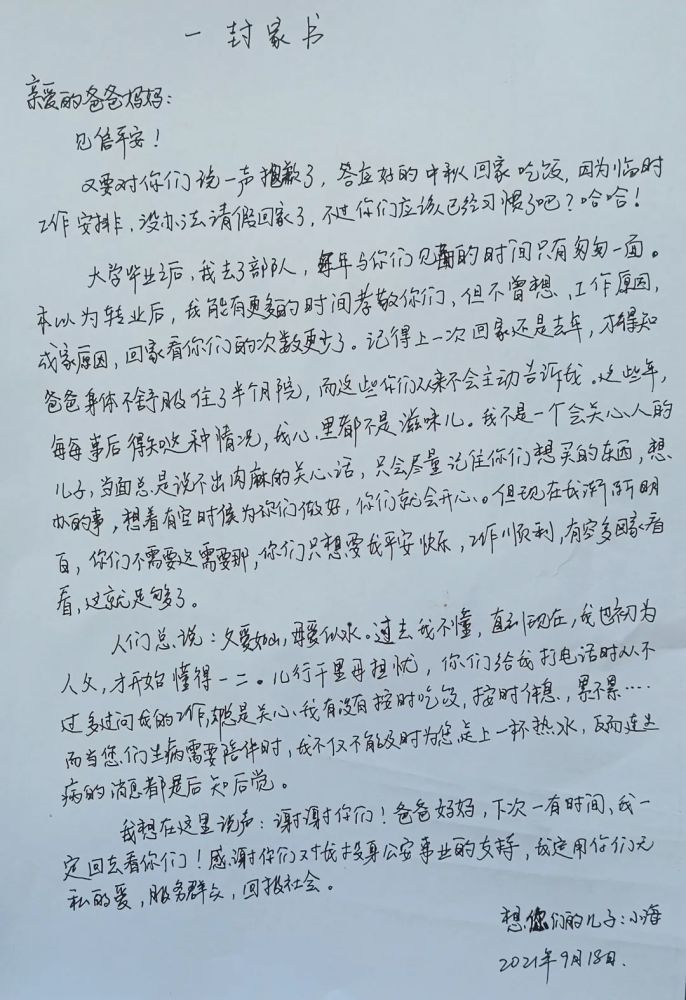 一封家书
亲爱的爸爸妈妈：
见信平安！
又要对你们说一声抱歉了，答应好的中秋回家吃饭，因为临时
工作安排，没办法请假回家了，不过你们应该已经习惯了吧？哈哈！
大学毕业后，我去了部队，每年与你们见面的时间只有匆匆一面。
本以为转业后，我能有更多的时间孝敬你们，但不曾想，工作原因，
成家原因，回家看你们的次数更少了。记得上一次回家还是去年，才得知
爸爸身体不舒服住了半个月院，而这些你们从来不会主动告诉我。这些年，
每每事后得知这种情况，我心里都不是滋味儿。我不是一个会关心人的
儿子，当面总是说不出肉麻的关心话，只会尽量记住你们想买的东西，想
办的事，想着有空时候为你们做好，你们就会开心。但现在我渐渐明
白，你们不需要这需要那，你们只想要我平安快乐，工作顺利，有空多回家看
看，这就足够了。
人们总说：父爱如山，母爱似水。过去我不懂，直到现在，我也初为
人父，才开始懂得一二。儿行千里母担忧，你们给我打电话时从不
过多过问我的工作，总是关心我有没有按时吃饭，按时休息，累不累……
而当您们生病需要陪伴时，我不仅不能及时为您端上一杯热水，反而连生
病的消息都是后知后觉。
我想在这里说声：谢谢你们！爸爸妈妈，下次一有时间，我一
定回去看你们！感谢你们对我投身公安事业的支持，我定用你们无
私的爱，服务群众，回报社会。
想你们的儿子：小海
2021年9月18日.